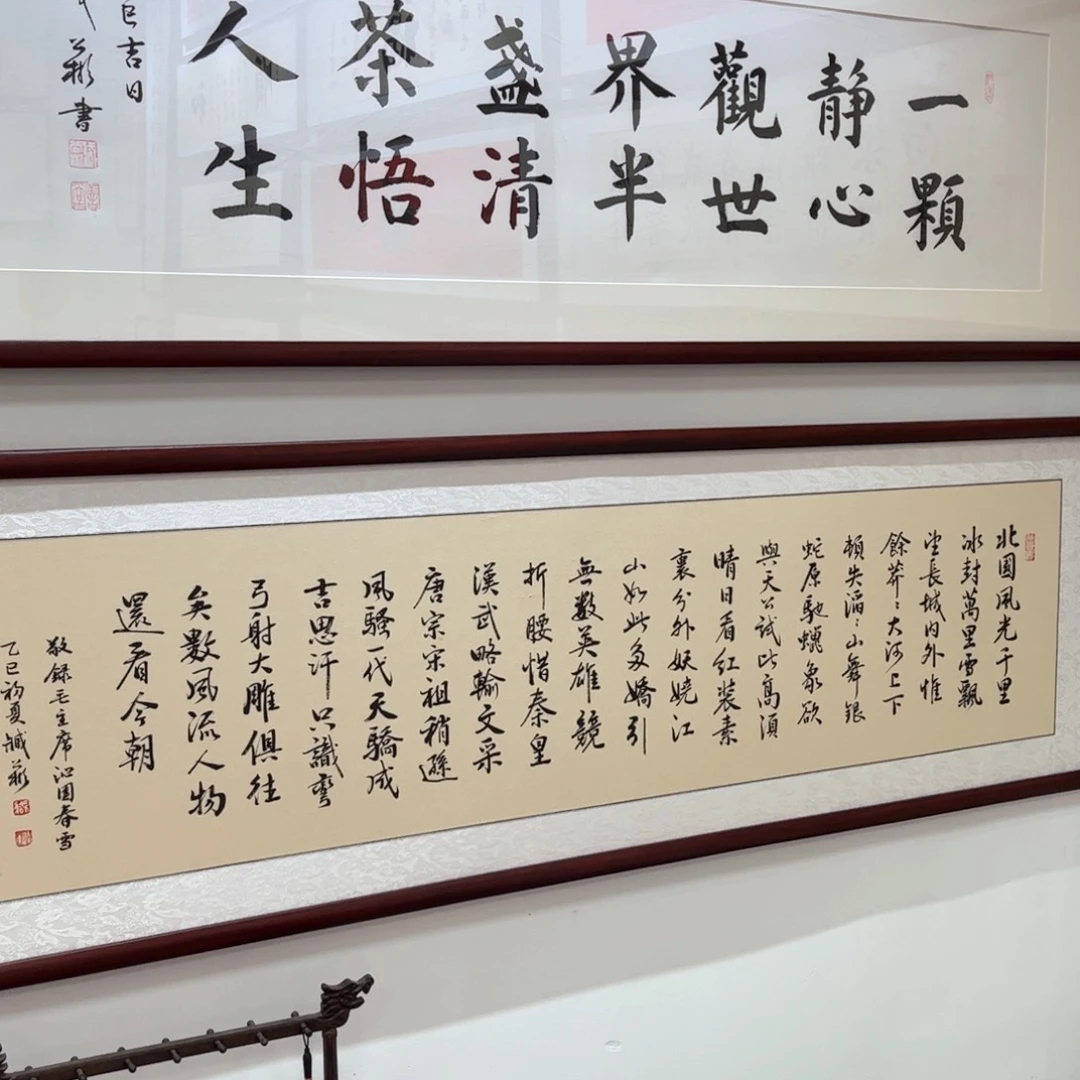 一顆
静心
觀世
界半
盞清
茶悟
人生
巳吉日
書
北國風光千里
冰封萬里雪飄
望長城内外惟
餘莽〻大河上下
頓失滔〻山舞銀
蛇原馳蠟象欲
與天公試比高須
晴日看紅裝素
裹分外妖嬈江
山如此多嬌引
無數英雄競
折腰惜秦皇
漢武略輸文采
唐宗宋祖稍遜
風騷一代天驕成
吉思汗只識彎
弓射大雕俱往
矣數風流人物
還看今朝
敬錄毛主席沁園春雪
乙巳初夏